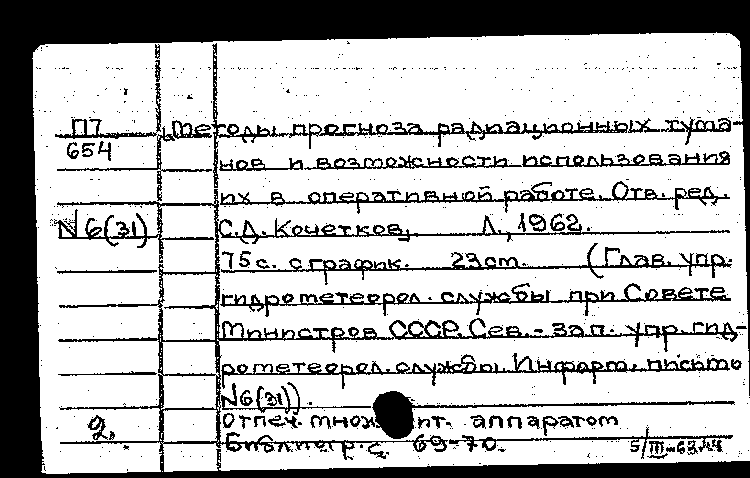 П7
654
N 6(31)
Методы прогноза радиационных тума-
нов и возможности использования
их в оперативной работе. Отв. ред.
С.Д. Кочетков, Л., 1962.
75 с. с график. 23 cm. (Глав. упр.
гидрометеорол. службы при Совете
Министров СССР. Сев.-Зап. упр. гид-
рометеорол. службы. Информ. письмо
N6(31)).
Отпеч. множ ит. аппаратом
Библиогр. с. 69-70.
2.
5/III-63